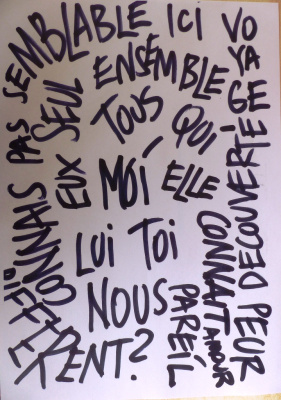 PAS SEMBLABLE ICI
VOYAGE
DÉCOUVERTE
PEUR
EUX SEUL ENSEMBLE
TOUS QUI
MOI
ELLE
CONNAIT
AMOUR
LUI TOI
NOUS
PAREIL
CONNAIS
DIFFÉRENT?